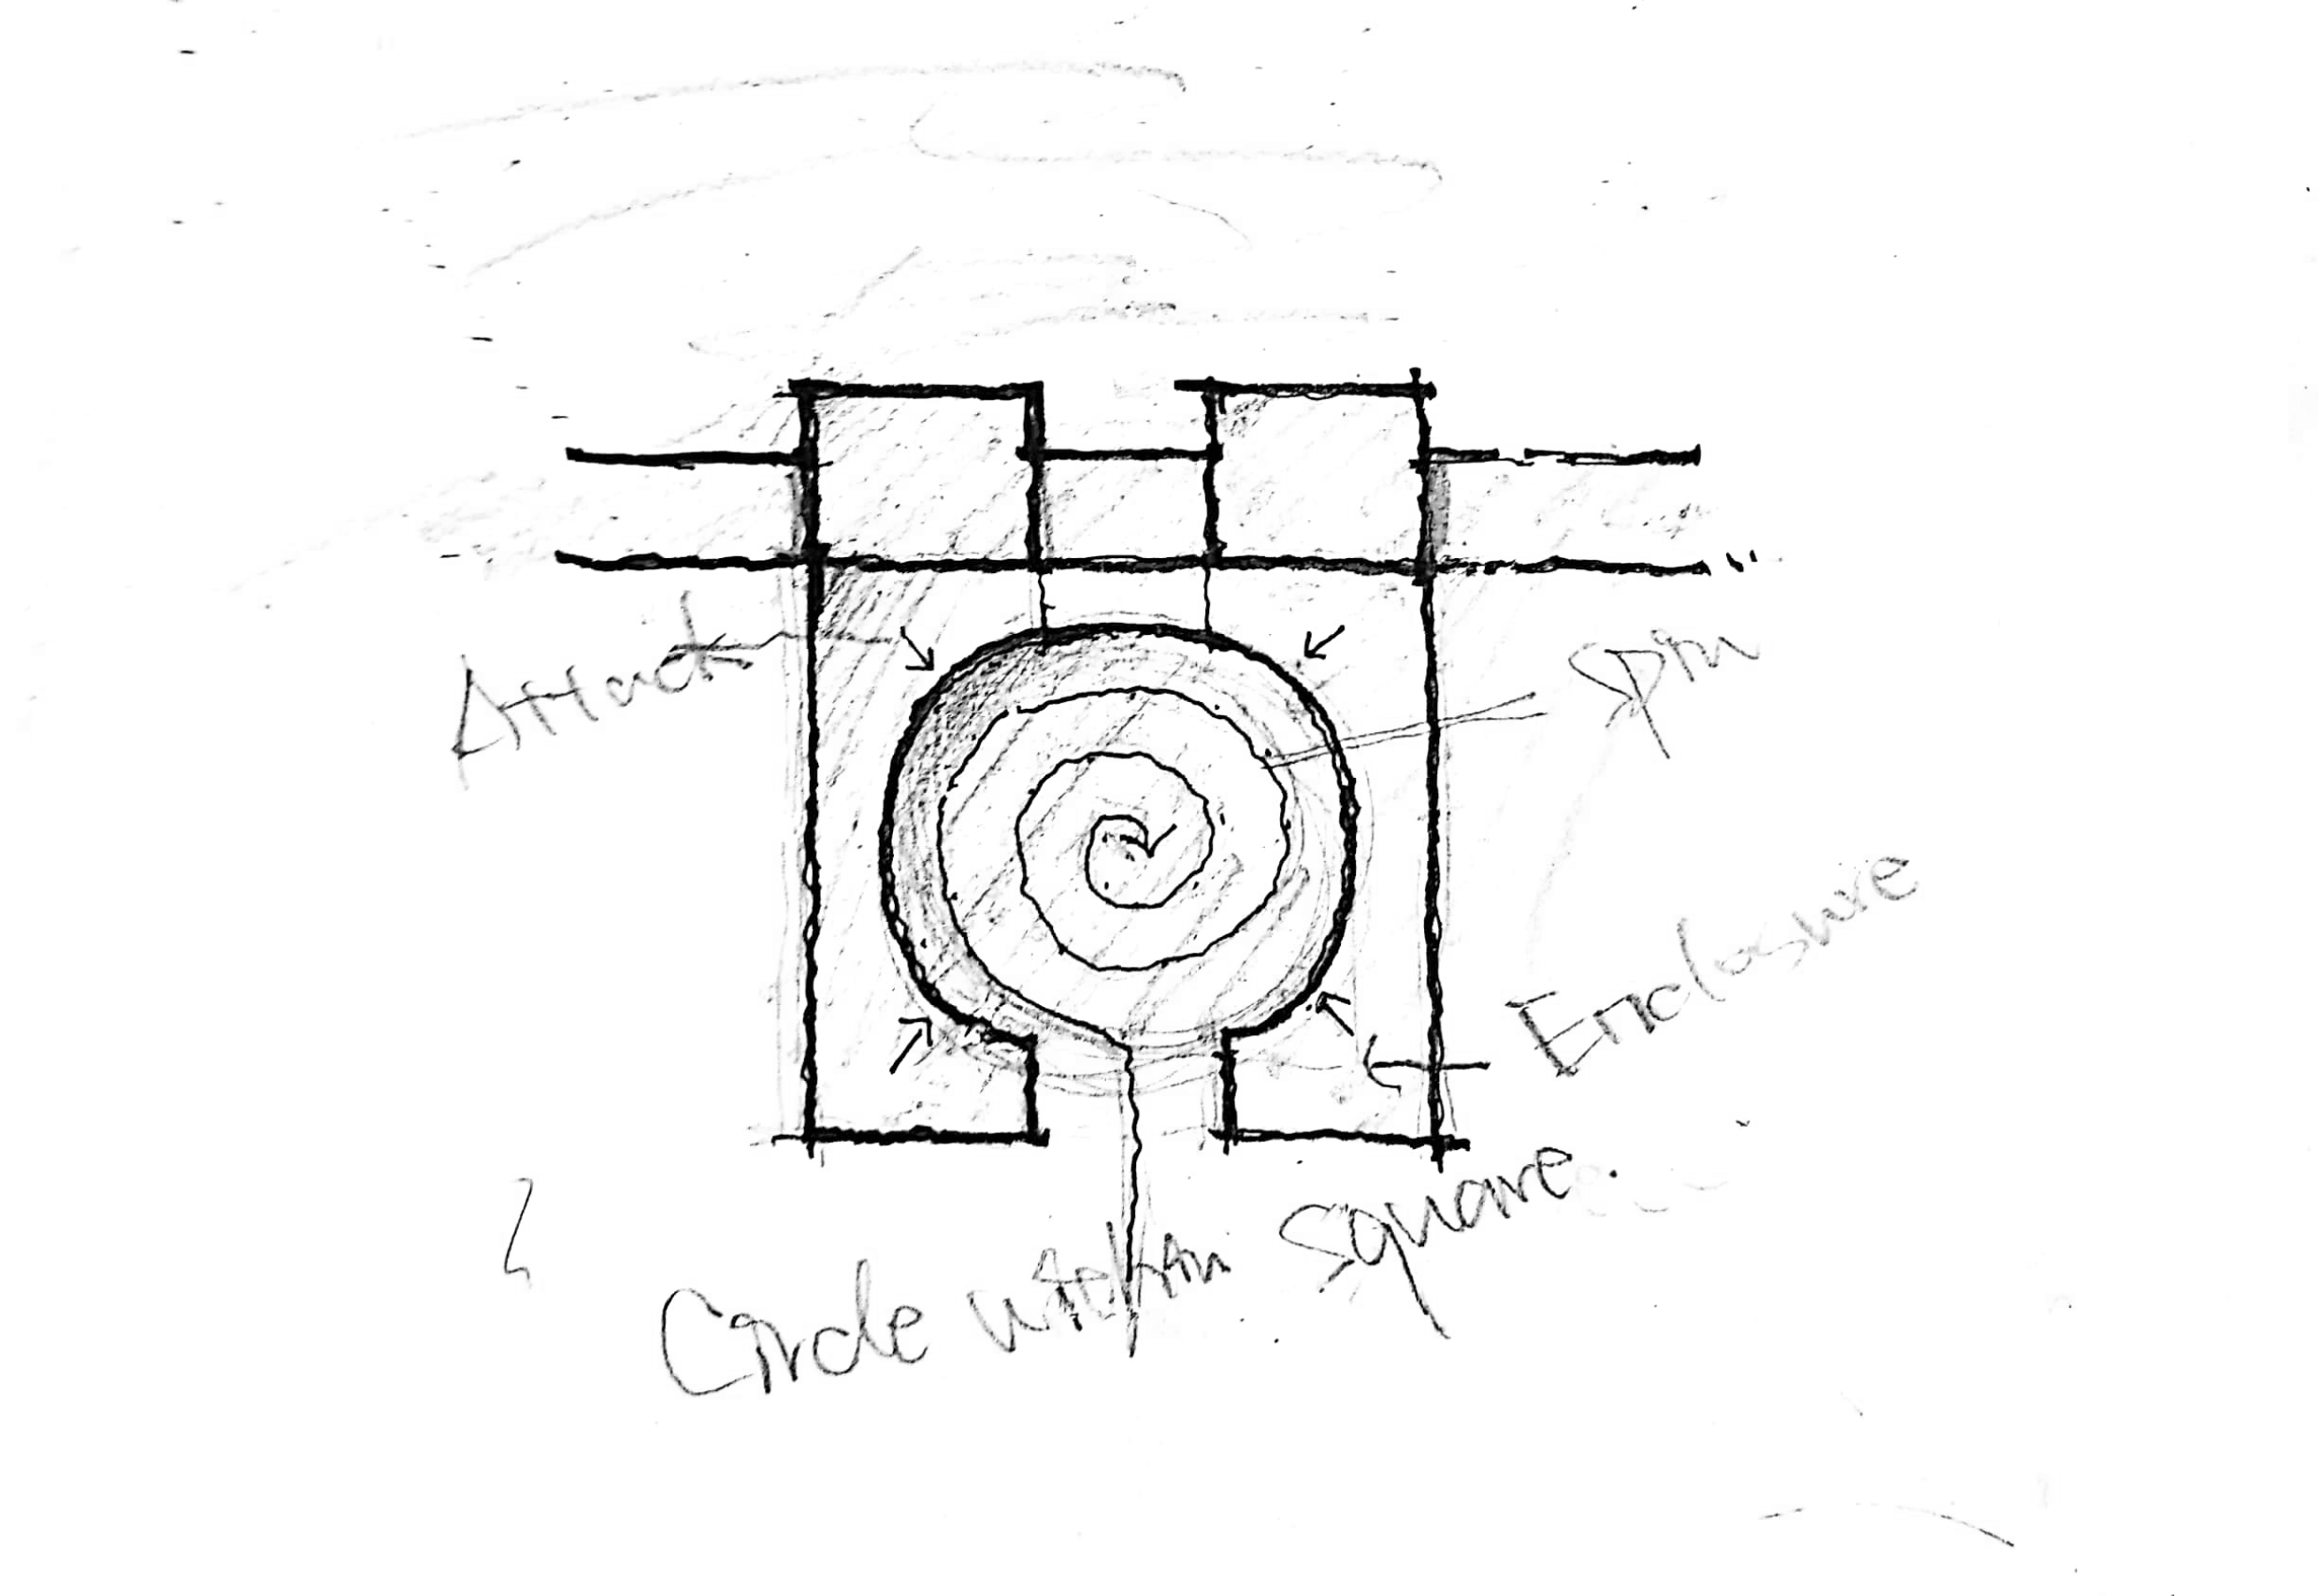 Attack
Spin
Enclosure
Circle within Square.